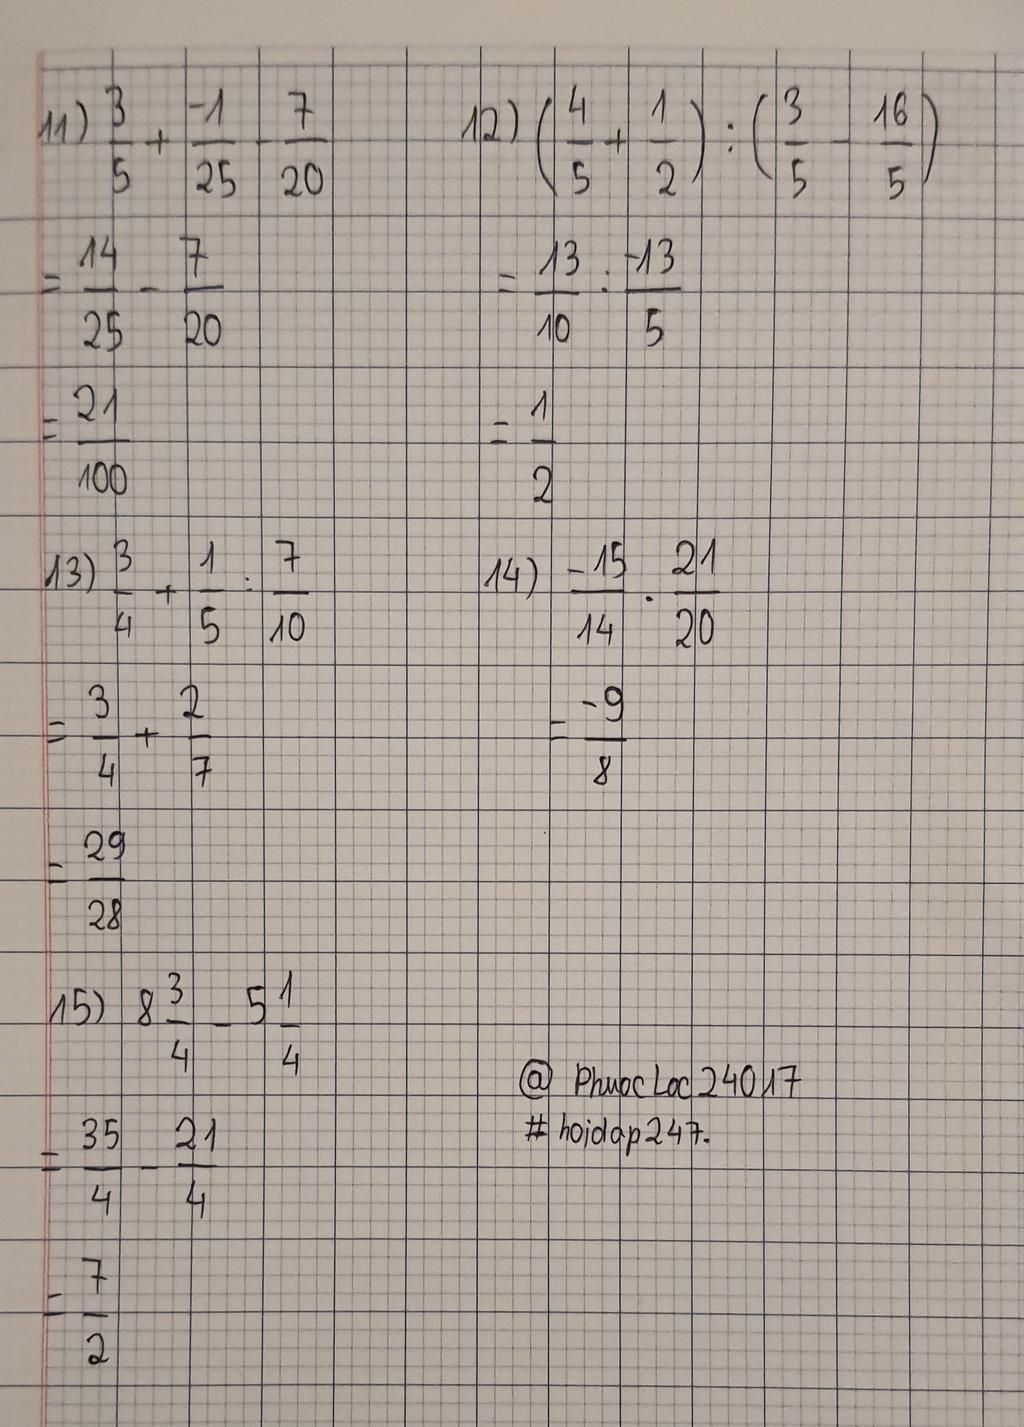 11) 3/5 + -1/25 - 7/20
= 14/25 - 7/20
= 21/100
12) (4/5 + 1/2) : (3/5 - 16/5)
= 13/10 : -13/5
= 1/2
13) 3/4 + 1/5 : 7/10
= 3/4 + 2/7
= 29/28
14) -15/14 . 21/20
= -9/8
15) 8 3/4 - 5 1/4
= 35/4 - 21/4
= 7/2
@ PhuocLoc24017
# hoidap247.